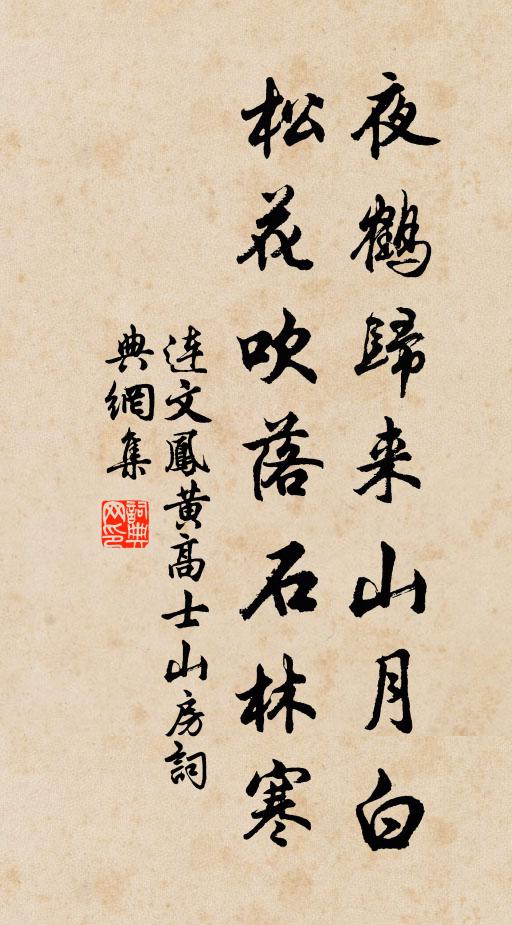 夜鶴歸来山月白
松花吹落石林寒
连文鳳黄高士山房詞
典網集
詞典网印